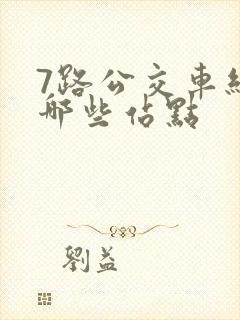 7路公交車經
哪些佔點
劉益